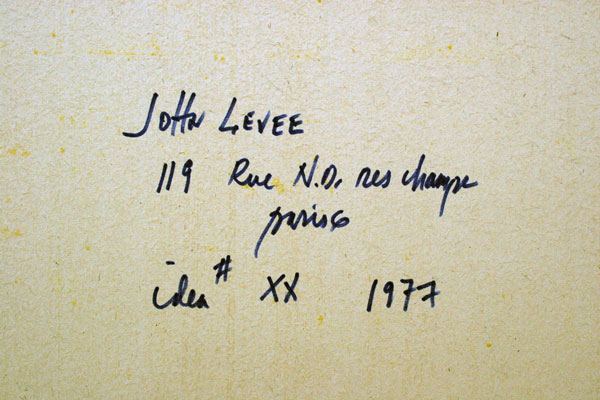 John Levee
119 Rue N.D. des champs
paris 6
idea # XX 1977